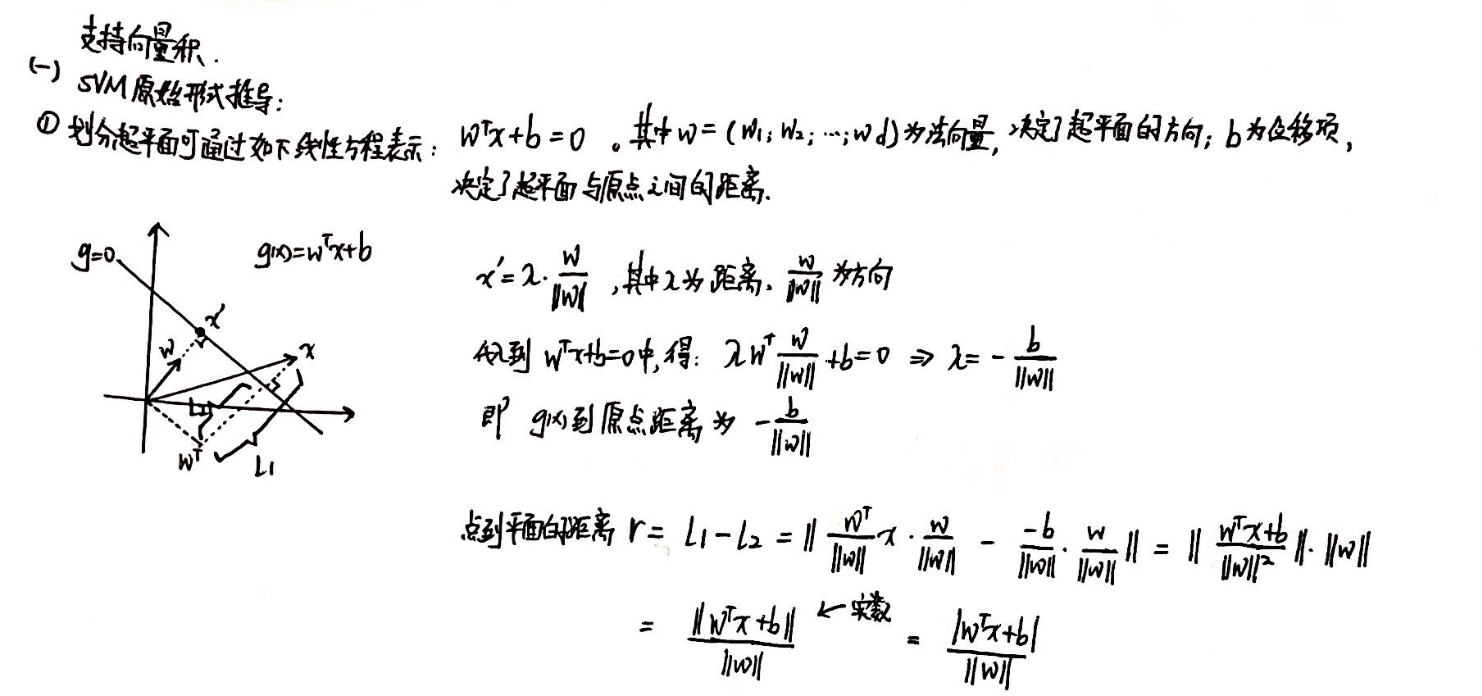 支持向量积.
(一) SVM原始形式推导:
① 划分超平面可通过如下线性方程表示: wᵀx+b=0 。其中 w=(w₁; w₂; …; wd)为法向量, 决定了超平面的方向; b为位移项,
决定了超平面与原点之间的距离.
g=0 g(x)=wᵀx+b
x' w x L₂ wᵀ L₁
x'=λ·w/‖w‖ ,其中λ为距离. w/‖w‖ 为方向
代入到 wᵀx+b=0中,得: λwᵀ w/‖w‖ +b=0 ⇒ λ= - b/‖w‖
即 g(x)到原点距离为 - b/‖w‖
点到平面的距离 r= L₁-L₂ = ‖ wᵀ/‖w‖ x · w/‖w‖ - -b/‖w‖ · w/‖w‖ ‖ = ‖ (wᵀx+b)/‖w‖² ‖·‖w‖
= ‖wᵀx+b‖/‖w‖ ←实数 = |wᵀx+b|/‖w‖